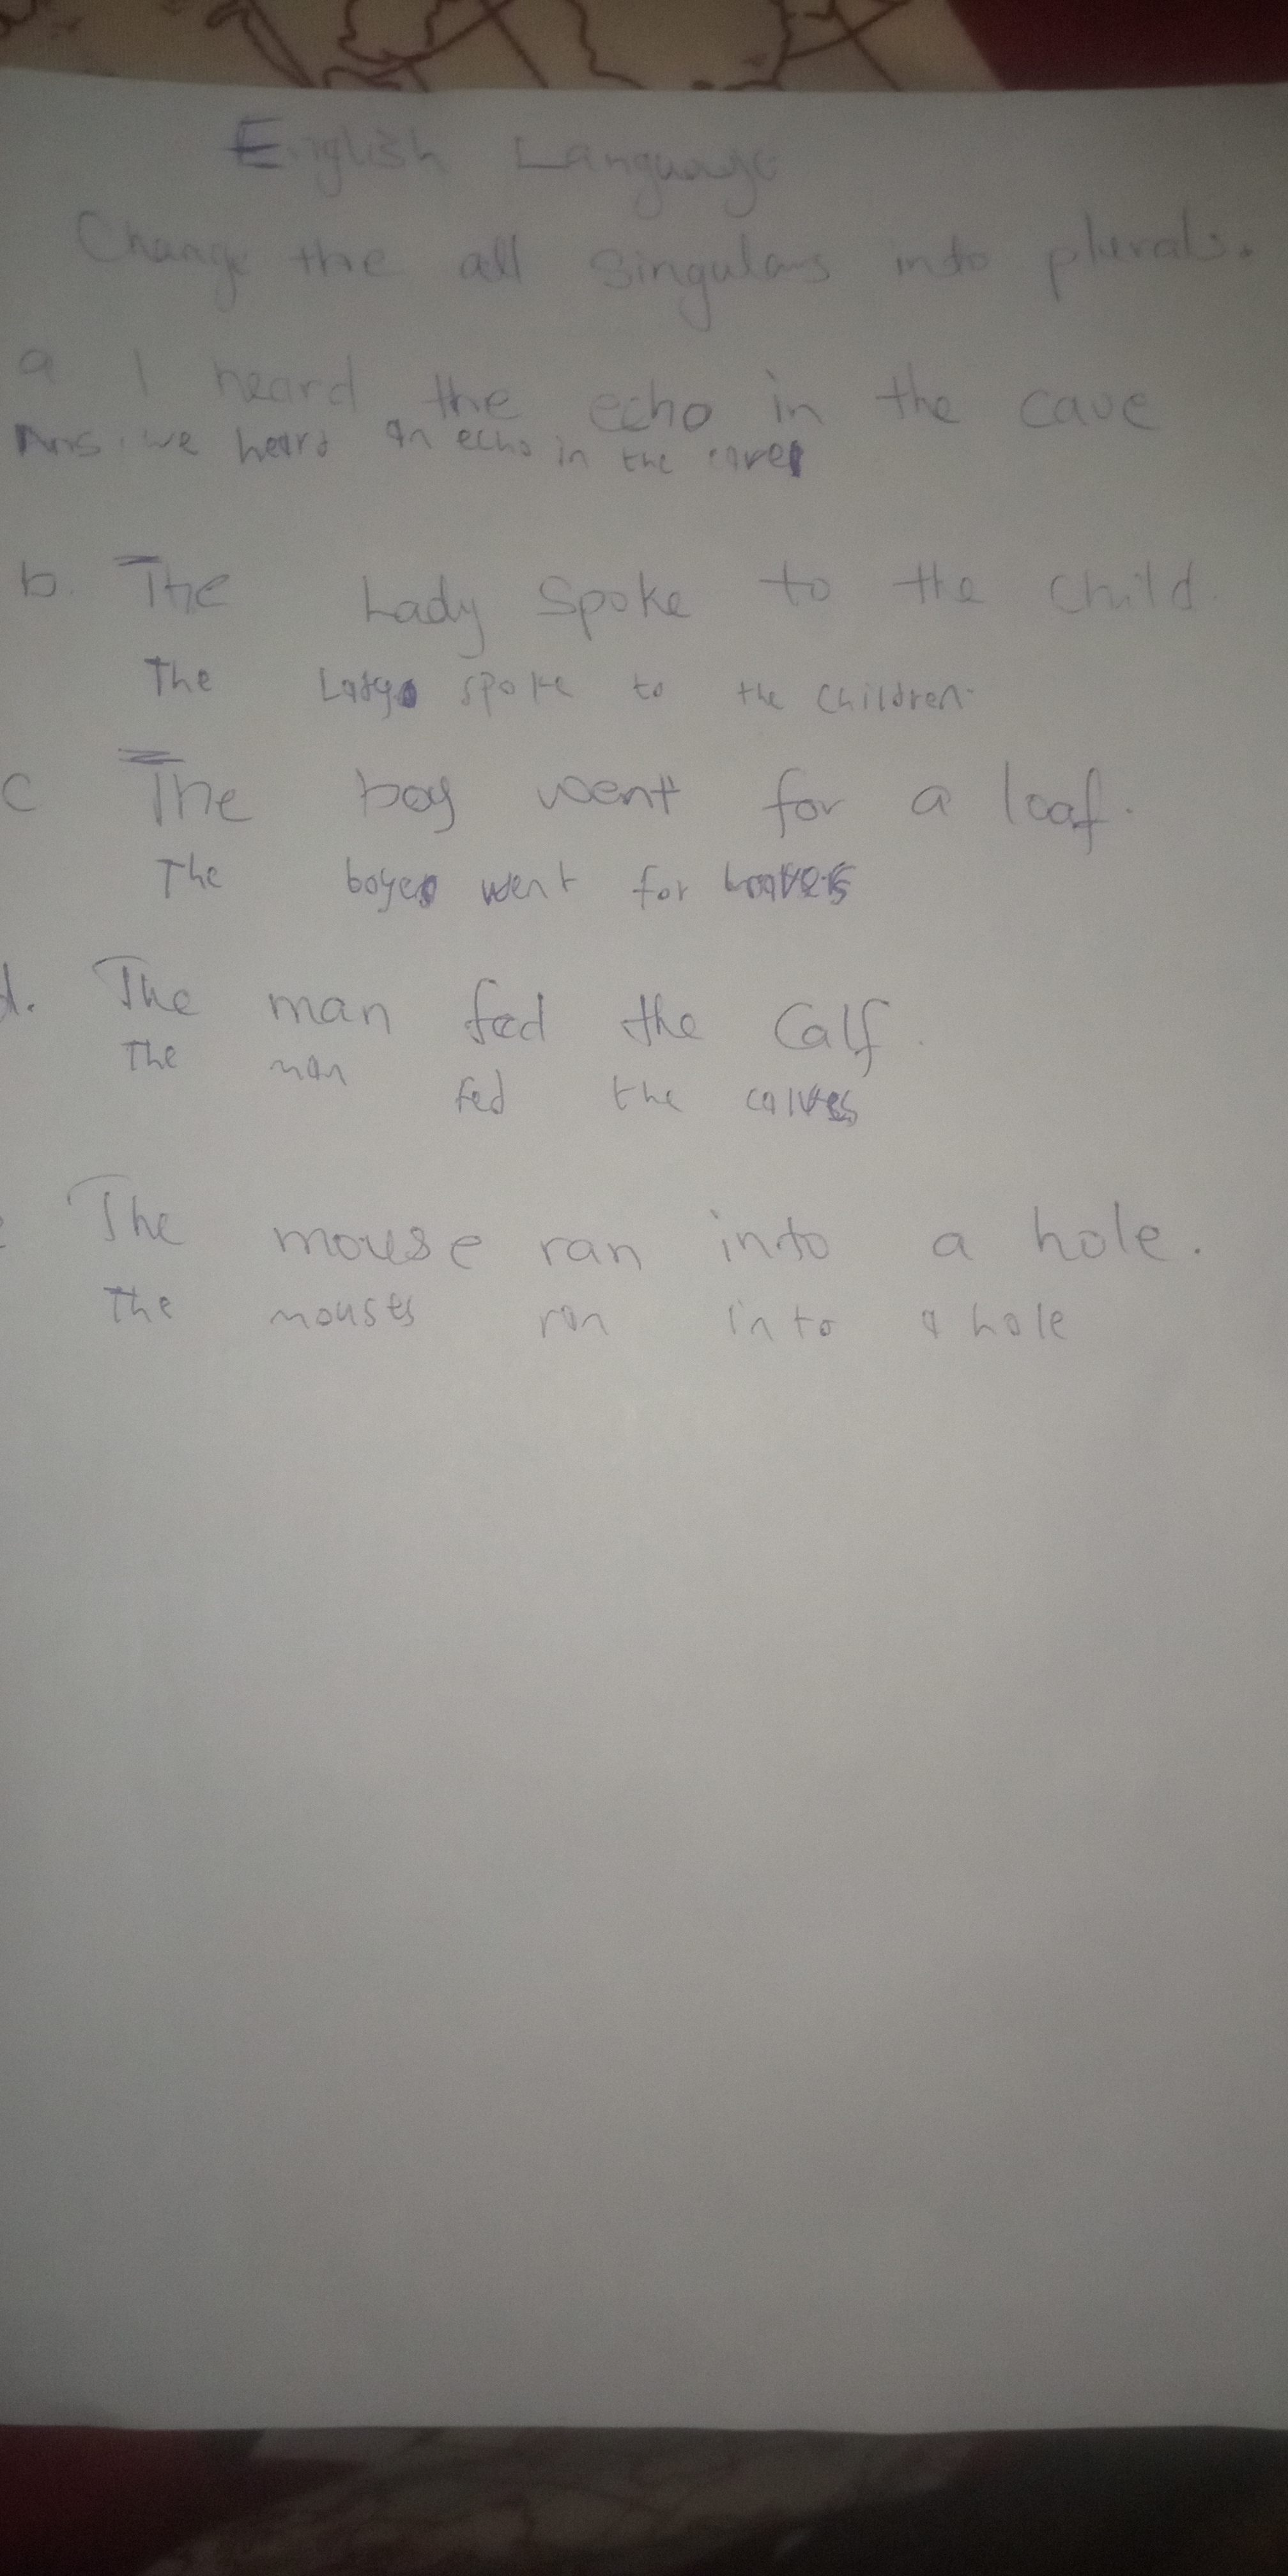 English Language
Change the all Singulars into plurals.
a I heard the echo in the cave
Ans. we heard an echo in the cave
b. The Lady Spoke to the child.
The Lady spoke to the children.
c The boy went for a loaf.
The boyes went for
d. The man fed the Calf.
The man fed the calves
The mouse ran into a hole.
The mouses ran into a hole